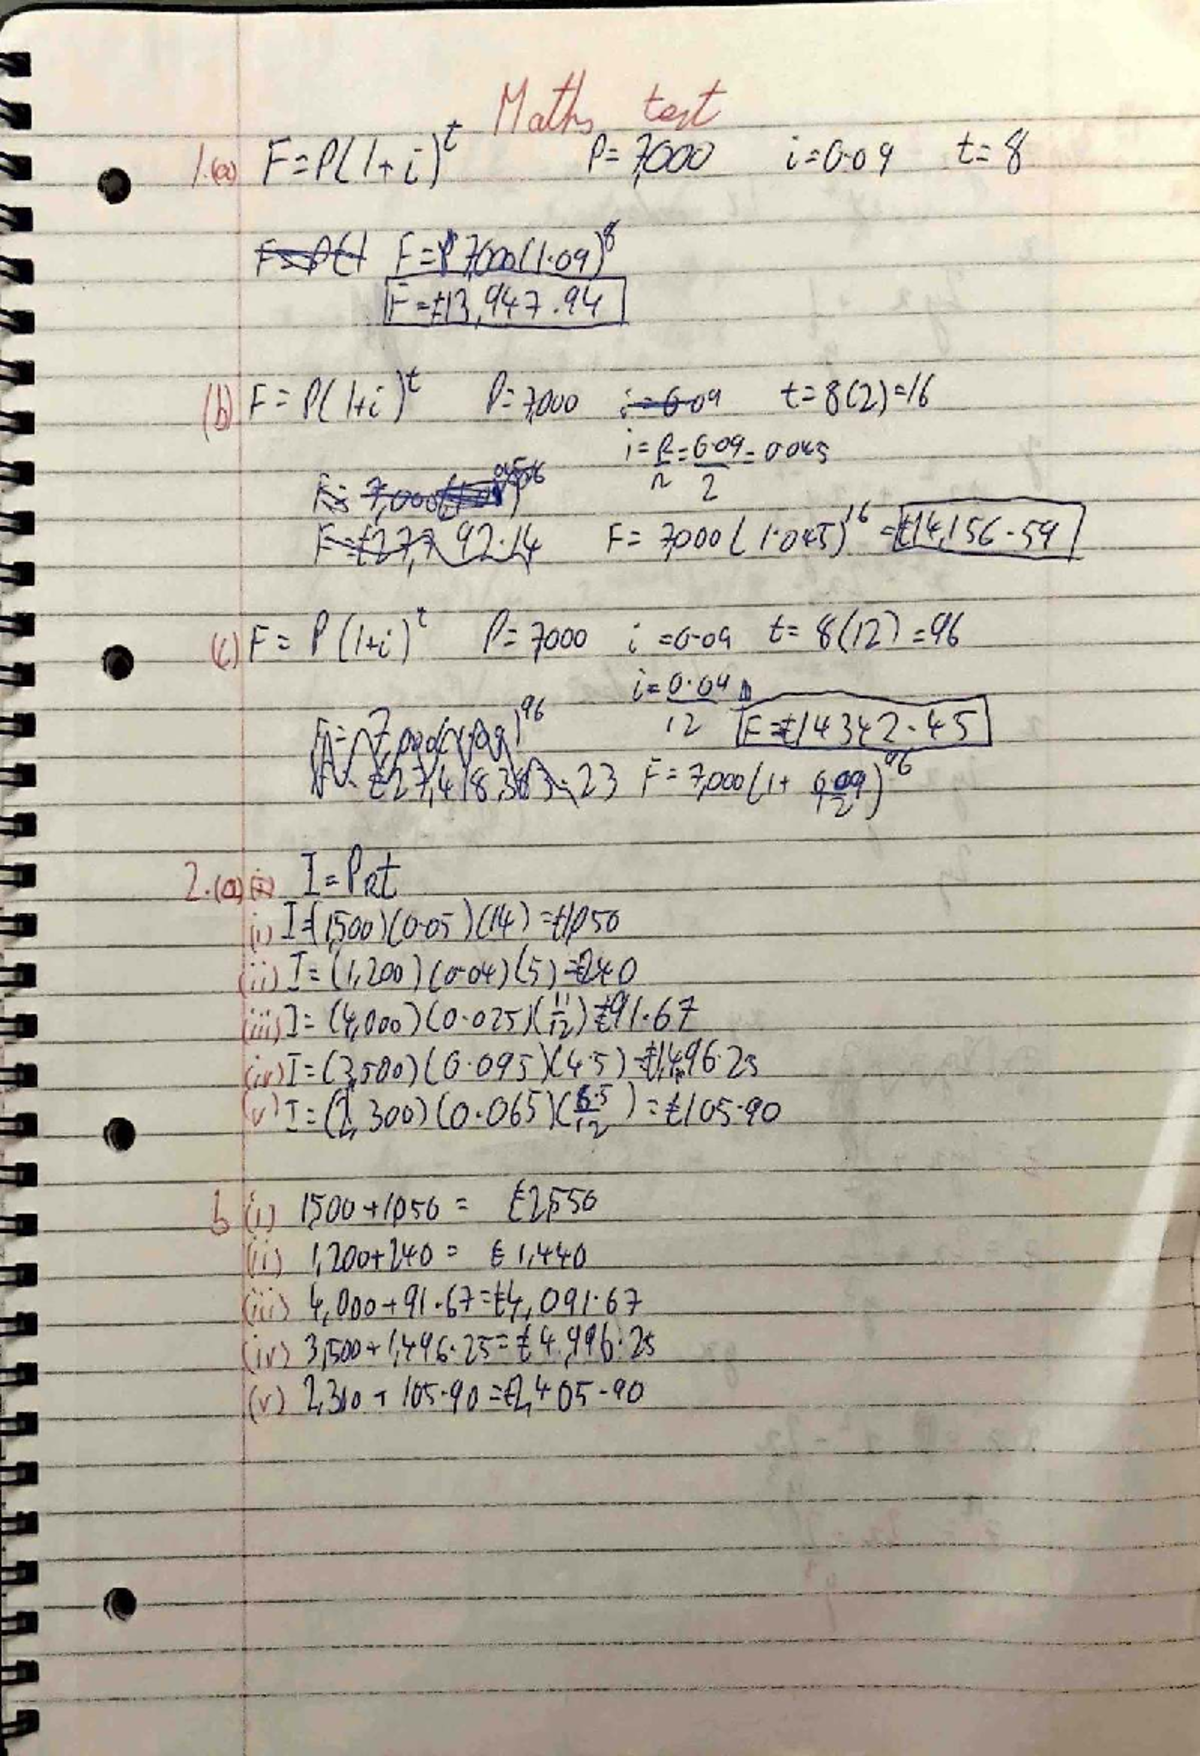 Maths test
1.(a) F=P(1+i)^t P=7,000 i=0.09 t=8
F=P(1 F=P 7,000(1.09)^8
F=£13,947.94
(b) F=P(1+i)^t P=7,000 i=0.09 t=8(2)=16
i=R/n=0.09/2=0.045
F=£27,792.14 F=7,000(1.045)^16=£14,156.59
(c) F=P(1+i)^t P=7000 i=0.09 t=8(12)=96
i=0.09/12 F=£14342.45
F=7,000(1.09)^96
£27,418,383.23 F=7,000(1+0.09/12)^96
2.(a)(i) I=PRt
(i) I=(1,500)(0.05)(14)=£1,050
(ii) I=(1,200)(0.04)(5)=£240
(iii) I=(4,000)(0.025)(11/12)£91.67
(iv) I=(3,500)(0.095)(4.5)=£1,496.25
(v) I=(2,300)(0.065)(8.5/12)=£105.90
b (i) 1,500+1,050= £2,550
(ii) 1,200+240= £1,440
(iii) 4,000+91.67=£4,091.67
(iv) 3,500+1,496.25=£4,996.25
(v) 2,300+105.90=£2,405.90